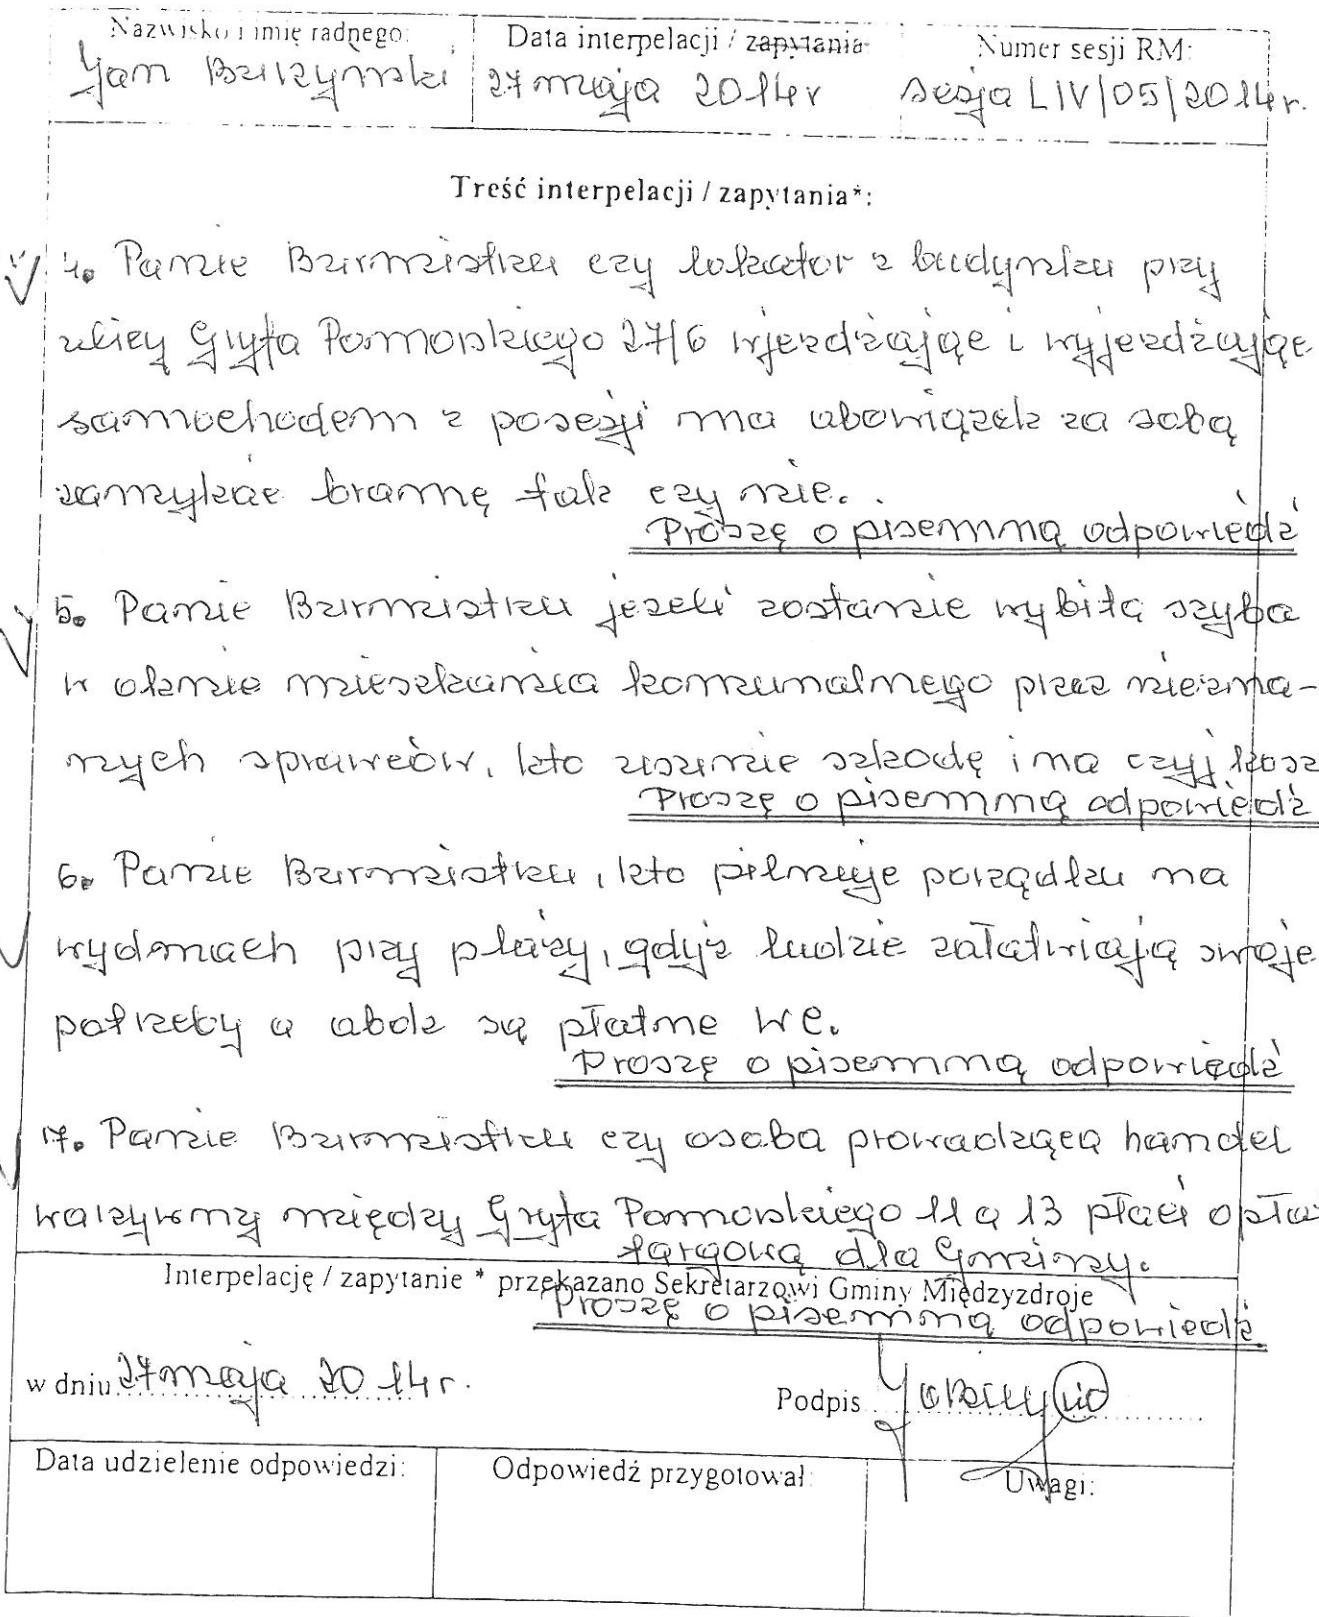 Nazwisko i imię radnego: Data interpelacji / zapytania Numer sesji RM:
Jan 27 maja 2014r sesja LIV/05/2014r.
Treść interpelacji / zapytania*:
4. Panie Burmistrzu czy lokator z budynku przy
ulicy Gryfa Pomorskiego 27/6 wjeżdżając i wyjeżdżając
samochodem z posesji ma obowiązek za sobą
zamykać bramę tak czy nie.
Proszę o pisemną odpowiedź
5. Panie Burmistrzu jeżeli zostanie wybita szyba
w oknie mieszkania komunalnego przez niezna-
nych sprawców, kto usunie szkodę i na czyj kosz
Proszę o pisemną odpowiedź
6. Panie Burmistrzu, kto pilnuje porządku na
wydmach przy plaży, gdyż ludzie załatwiają swoje
potrzeby a obok są płatne WC.
Proszę o pisemną odpowiedź
17. Panie Burmistrzu czy osoba prowadzącą handel
warzywny między Gryfa Pomorskiego 11 a 13 płaci opła
targową dla Gminy.
Interpelację / zapytanie * przekazano Sekretarzowi Gminy Międzyzdroje
Proszę o pisemną odpowiedź
w dniu 27 maja 2014r. Podpis
Data udzielenie odpowiedzi: Odpowiedź przygotował: Uwagi: